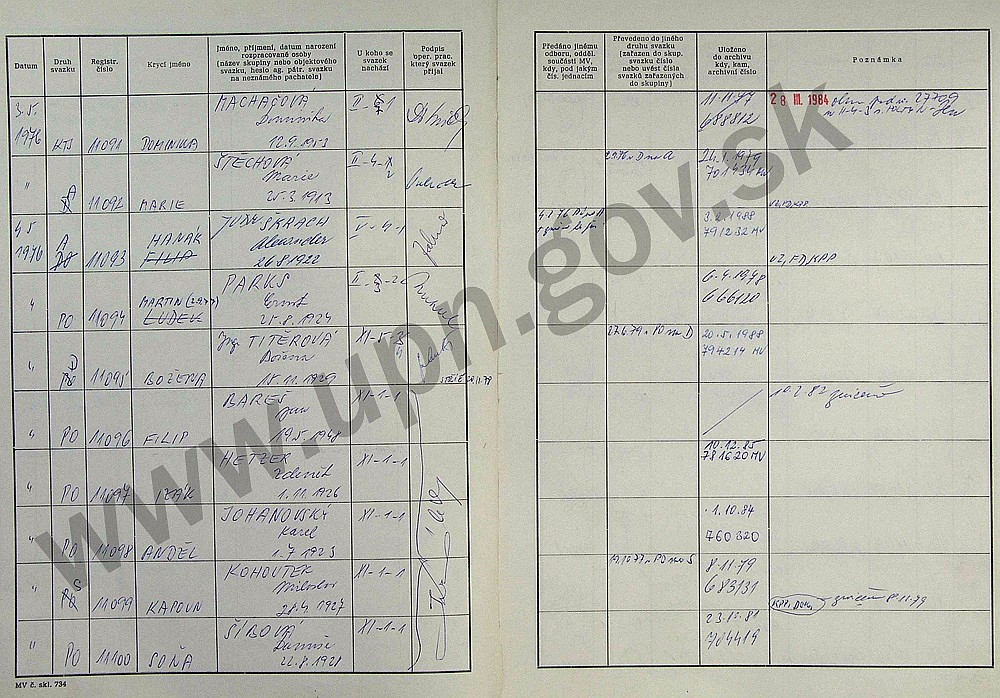 Datum
Druh svazku
Registr. číslo
Krycí jméno
Jméno, příjmení, datum narození
rozpracované osoby
(název skupiny nebo objektového
svazku, heslo ag. pátr. svazku
na neznámého pachatele)
U koho se
svazek
nachází
Podpis
oper. prac.
který svazek
přijal
Předáno jinému
odboru, odděl.
součásti MV,
kdy, pod jakým
čís. jednacím
Převedeno do jiného
druhu svazku
(zařazen do skup.
svazku číslo
nebo uvést čísla
svazků zařazených
do skupiny)
Uloženo
do archivu
kdy, kam,
archivní číslo
Poznámka
3.5.
1976 KTS 11091 DOMINIKA
MACHAČOVÁ
Dominika
12.9.1953
11.11.77
688812
28 III. 1984
" A 11092 MARIE
ŠTĚCHOVÁ
Marie
25.3.1913
24.1.1979
701434 MV
4.5
1976 A 11093 HANÁK
FILIP
JUDr ŠKRACH
Alexander
26.8.1922
V-4-1
3.2.1988
791232 MV
VZ, FD, KPP
" PO 11094 MARTIN
LUDEK
PARKS
Ernst
25.8.1924
6.4.1978
666120
" D 11095 BOŽENA
Ing. TITĚROVÁ
Božena
15.11.1929
27.6.79 z PO na D
20.5.1988
794214 MV
" PO 11096 FILIP
BAREŠ
Jan
19.5.1948
XI-1-1
10.2.82 zničeno
" PO 11097 IZÁK
HETZER
Zdeněk
1.11.1926
XI-1-1
10.12.85
781620 MV
" PO 11098 ANDĚL
JOHANOVSKÝ
Karel
1.7.1923
XI-1-1
1.10.84
760320
" S 11099 KAPOUN
KOHOUTEK
Miloslav
28.4.1927
XI-1-1
19.10.77 z PO na S
8.11.79
683131
zničeno 8.11.79
" PO 11100 SOŇA
ŠÍBOVÁ
Danuše
22.8.1921
XI-1-1
23.10.81
704419
MV č. skl. 734
www.upn.gov.sk